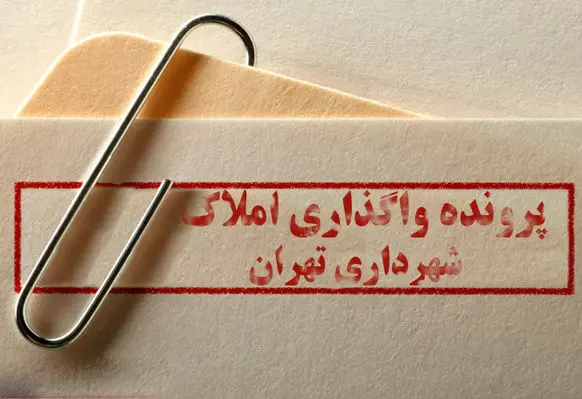 پرونده واگذاری املاک
شهرداری تهران